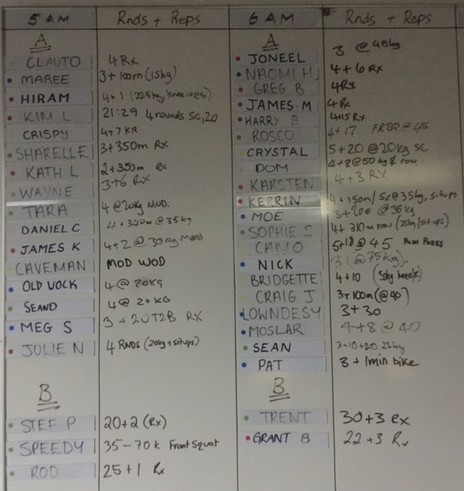 5 AM Rnds + Reps
A
CLAUTO 4 Rx
MAREE 3+100m (15kg)
HIRAM 4+1
KIM L 21:29 4 rounds Sc, 20
CRISPY 4+7 RX
SHARELLE 3+350m Rx
KATH L 2+350m Rx
WAYNE 3+6 Rx
TARA 4 @20kg MOD.
DANIEL C 4+340m @35kg
JAMES K 4+2 @30kg MOD
CAVEMAN MOD WOD
OLD VOCK 4 @ 20KG
SEAND 4 @ 20KG
MEG S 3 + 20 T2B RX
JULIE N 4 RNDS (20kg + situps)
B
STEF P 20+2 (Rx)
SPEEDY 35 - 70k Front Squat
ROD 25+1 Rx
6 AM Rnds + Reps
A
JONEEL 3 @ 40kg
NAOMI H 4+6 Rx
GREG B 4Rx
JAMES M 4 Rx
HARRY B 4+15 Rx
ROSCO 4+17 @ 45
CRYSTAL 5+20 @20kg SC
DOM 4+8 @50kg & row
KARSTEN 4+3 RX
KERRIN 4+150m/ Sc @35kg, situps
MOE 3+200 @ 35kg
SOPHIE S 4+210m row (25kg/situps)
CAMO 5+18 @ 45 Push Press
NICK 3 (@75kg)
BRIDGETTE 4+10
CRAIG J 3+100m (@40)
LOWNDESY 3+30
MOSLAR 4+8 @ 40
SEAN 3+10+20 25kg
PAT 3 + 1min bike
B
TRENT 30+3 Rx
GRANT B 22+3 Rx